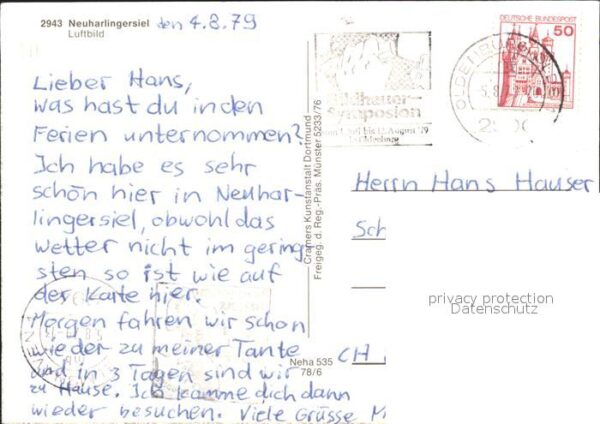 2943 Neuharlingersiel
Luftbild
den 4.8.79
Lieber Hans,
was hast du in den
Ferien unternommen?
Ich habe es sehr
schön hier in Neuhar-
lingersiel, obwohl das
wetter nicht im gering-
sten so ist wie auf
der Karte hier.
Morgen fahren wir schon
wieder zu meiner Tante
und in 3 Tagen sind wir
zu Hause. Ich komme dich dann
wieder besuchen. Viele Grüsse M
Cramers Kunstanstalt Dortmund
Freigeg. d. Reg.-Präs. Münster 5233/76
Neha 535
78/6
Symposion
August 79
OLDENBURG
DEUTSCHE BUNDESPOST
50
Herrn Hans Hauser
Sch
CH
privacy protection
Datenschutz